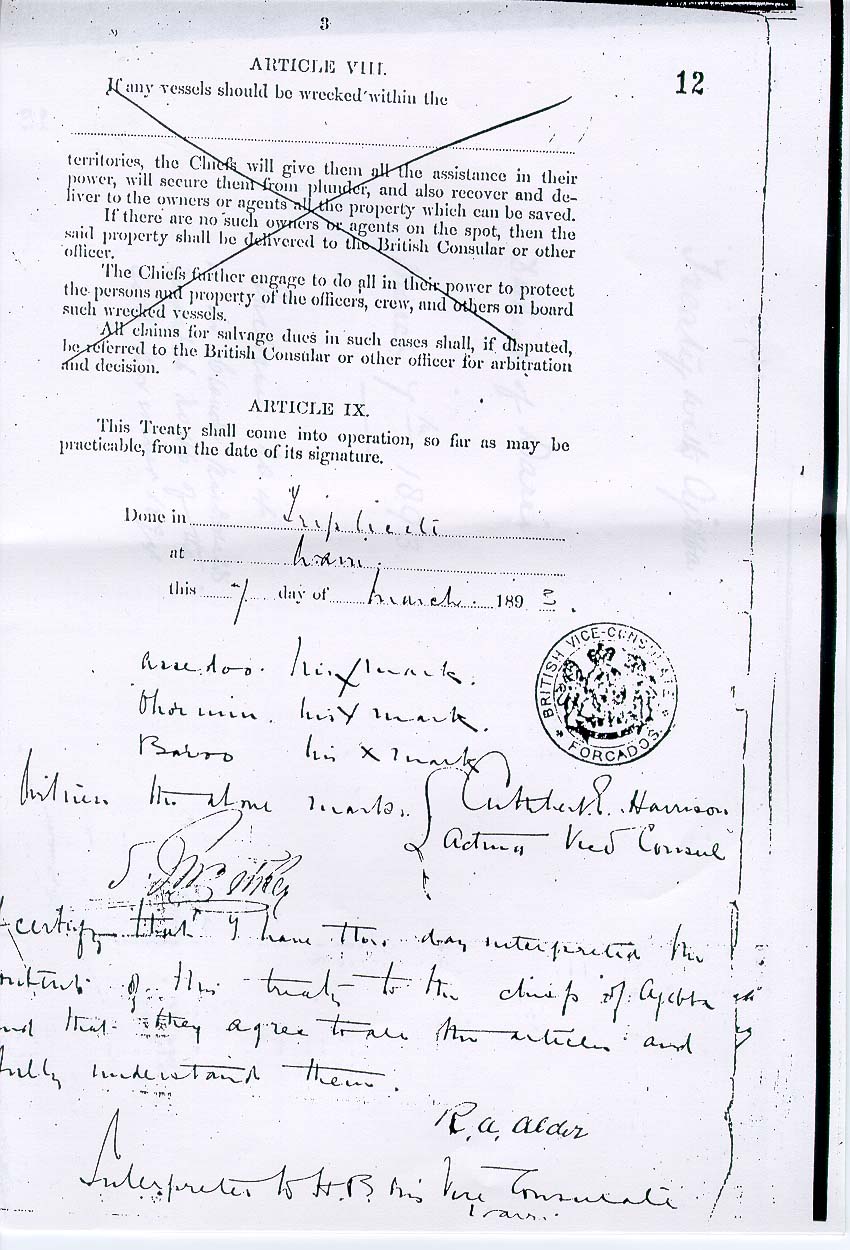 3
12
ARTICLE VIII.
If any vessels should be wrecked within the
territories, the Chiefs will give them all the assistance in their
power, will secure them from plunder, and also recover and de-
liver to the owners or agents all the property which can be saved.
If there are no such owners or agents on the spot, then the
said property shall be delivered to the British Consular or other
officer.
The Chiefs further engage to do all in their power to protect
the persons and property of the officers, crew, and others on board
such wrecked vessels.
All claims for salvage dues in such cases shall, if disputed,
be referred to the British Consular or other officer for arbitration
and decision.
ARTICLE IX.
This Treaty shall come into operation, so far as may be
practicable, from the date of its signature.
Done in Triplicate
at
this 7 day of March 1893.
BRITISH VICE-CONSULATE
FORCADOS
his X mark.
his X mark.
his X mark
Witness the above marks. Cuthbert E. Harrison
Acting Vice Consul
certify that I have this day interpreted the
of this treaty to the chiefs of
and that they agree to all the articles and
fully understand them.
R. A. Alder
Interpreter to H.B.M's Vice Consulate